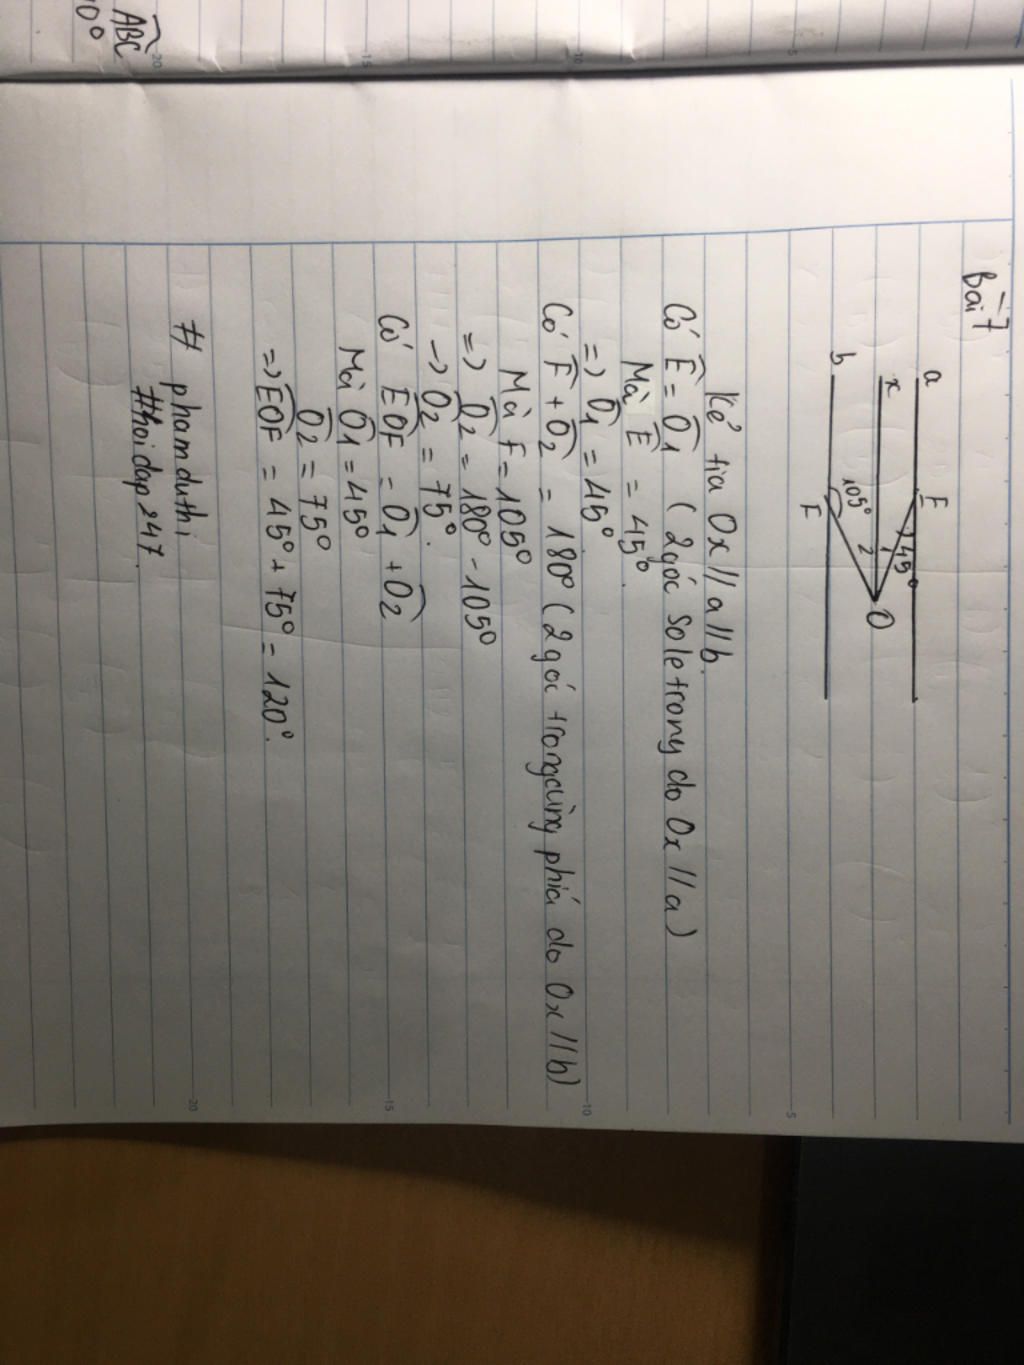 ABC
Bài 7
a
x
b
E
45°
1
2
O
105°
F
Kẻ tia Ox // a // b.
Có Ê = Ô1 (2 góc so le trony do Ox // a)
Mà Ê = 45°.
=> Ô1 = 45°
Có F̂ + Ô2 = 180° (2 gói trong cùng phiá do Ox // b)
Mà F = 105°
=> Ô2 = 180° - 105°
-> Ô2 = 75°.
Có EOF = Ô1 + Ô2
Mà Ô1 = 45°
Ô2 = 75°
=> EOF = 45° + 75° = 120°.
# phamduthi
#hoidap247.
5
10
15
20
5
10
15
20